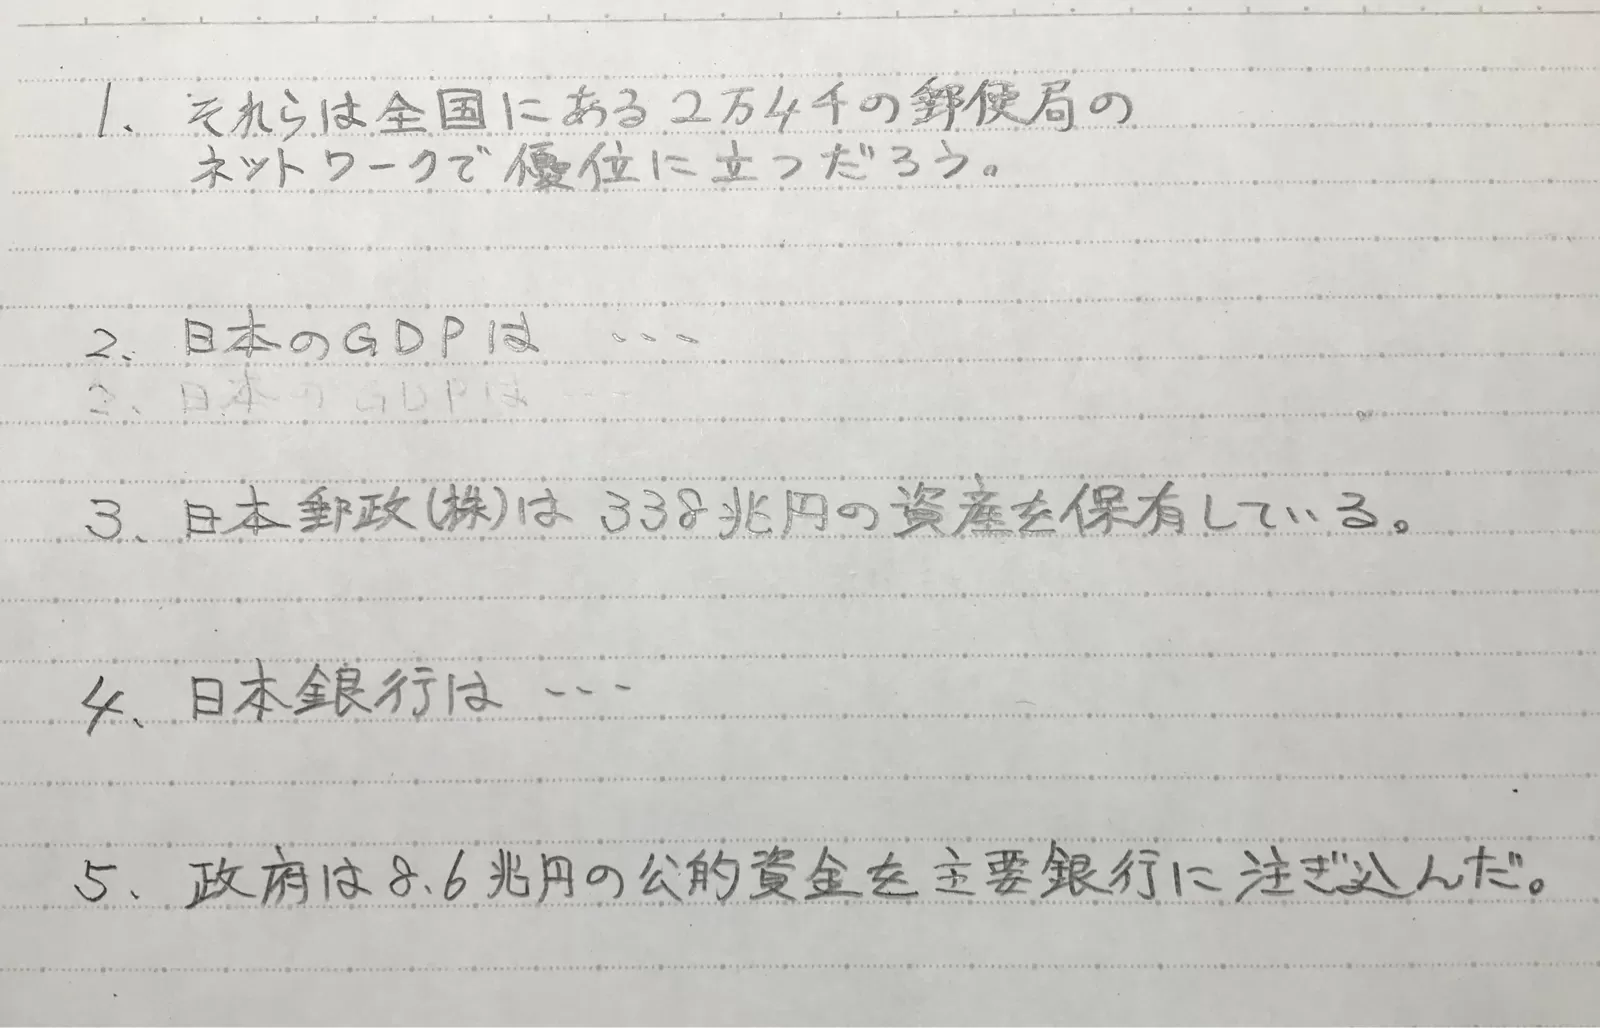 1、それらは全国にある2万4千の郵便局の
ネットワークで優位に立つだろう。
2、日本のGDPは ---
2、日本のGDPは ---
3、日本郵政(株)は338兆円の資産を保有している。
4、日本銀行は ---
5、政府は8.6兆円の公的資金を主要銀行に注ぎ込んだ。